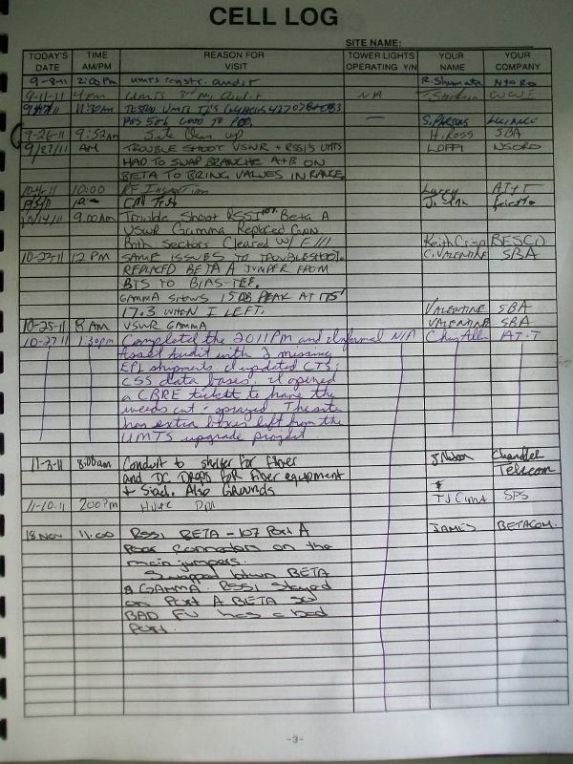 CELL LOG
SITE NAME:
TODAY'S DATE TIME AM/PM REASON FOR VISIT TOWER LIGHTS OPERATING Y/N YOUR NAME YOUR COMPANY
9-8-11 2:00 Pm UMTS constr. audit R. Shumata
9-11-11 4pm UMTS N/A
11:30AM TESTED UMTS T1's
9-26-11 9:52am Site Clean up H. Ross SBA
9/27/11 AM TROUBLE SHOOT VSWR + RSSIS UMTS LOPPI NSORO
HAD TO SWAP BRANCHE A+B ON
BETA TO BRING VALUES IN RANGE.
10:00 Larry AT+T
Call Test
10/14/11 9:00Am Trouble Shoot RSSI Beta A
VSWR Gamma Replaced Conn
Both Sectors Cleared w/ E/// Keith BESCO
10-23-11 12 PM SAME ISSUES TO TROUBLESHOOT. C. VALENTINE SBA
REPLACED BETA A JUMPER FROM
BTS TO BIAS-TEE.
GAMMA SHOWS 15 DB PEAK AT ITS
17.3 WHEN I LEFT. VALENTINE SBA
10-25-11 8 AM VSWR GAMMA VALENTINE SBA
10-27-11 1:30pm Completed the 2011 Pm and N/A AT-T
Asset Audit with 2 missing
EPL shipments updated CTS;
CSS data bases, opened
a CBRE ticket to have the
weeds cut & sprayed. The site
has extra boxes left from the
UMTS upgrade project
11-3-11 8:00am Conduit to shelter for fiber Chandler
and DC DROPS FOR Fiber equipment Telecom
+ Siad. Also Grounds
11-10-11 2:00Pm HVAC PM TJ SPS
18 NOV 11:00 RSSI BETA -107 Port A JAMES BETACOM.
Poor Connector on the
main jumpers.
Swapped btwn BETA
& GAMMA. RSSI stayed
on Port A BETA so
BAD FU has a bad
Port.
-3-